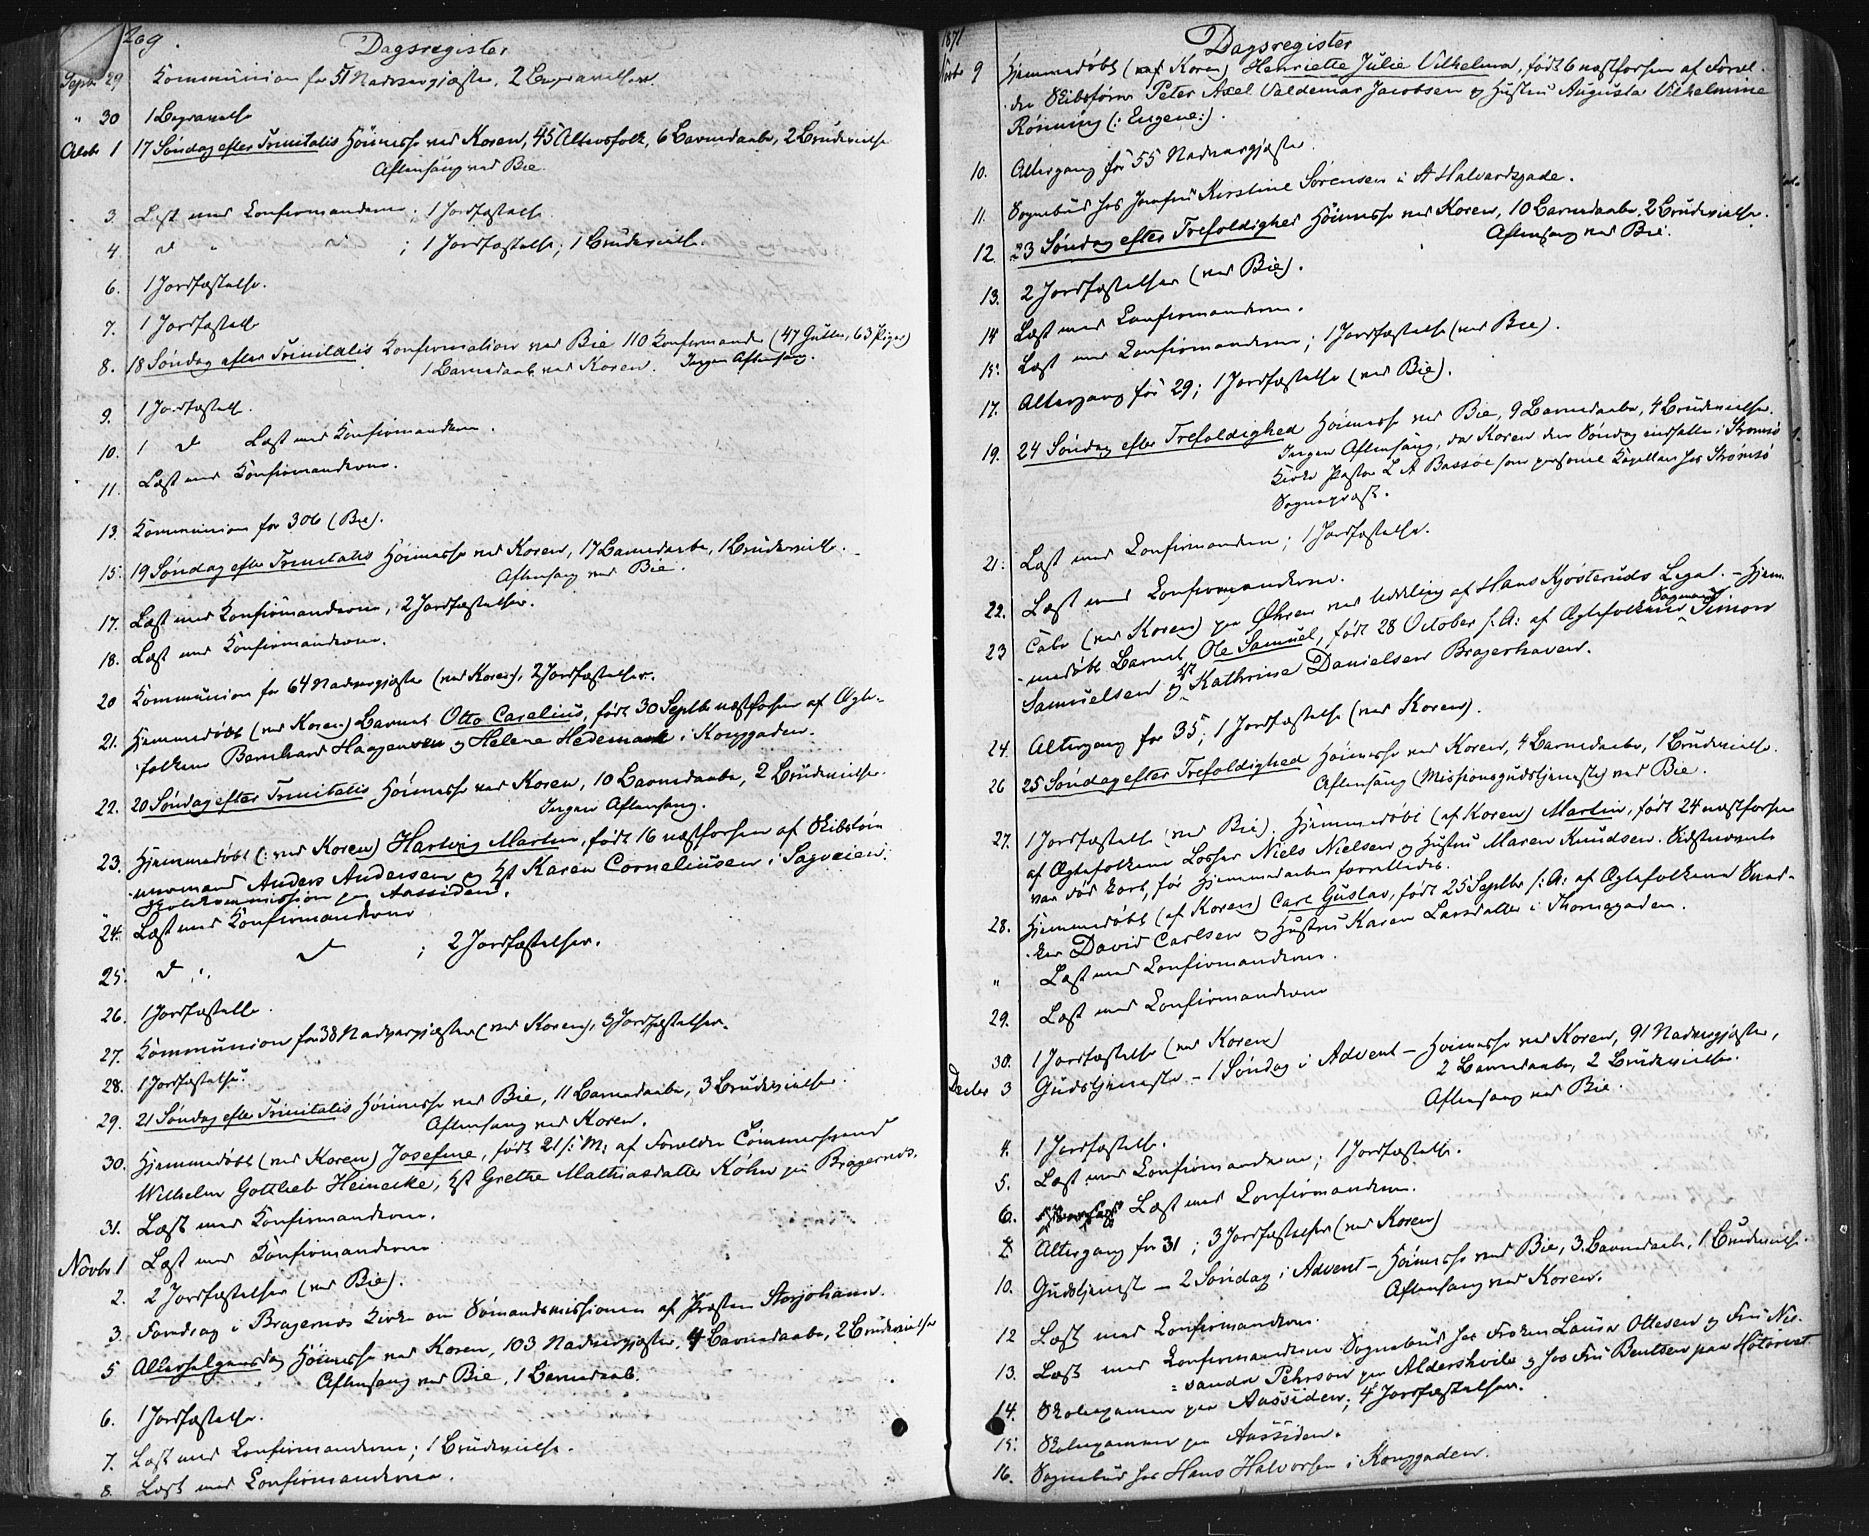 269.
Dagsregister
Septbr 29 Kommunion for 51 Nadvergjæster, 2 Begravelser.
" 30 1 Begravelse
Octobr 1 17 Søndag efter Trinitatis Høimesse ved Koren, 45 Altersfolk, 6 Barnedaabe, 2 Brudevielse
Aftensang ved Bie.
3. Læst med Confirmanderne; 1 Jordfæstelse.
4. d " d ; 1 Jordfæstelse; 1 Brudevielse.
6. 1 Jordfæstelse.
7. 1 Jordfæstelse
8. 18 Søndag efter Trinitatis Konfirmation ved Bie 110 Konfirmander (47 Gutter, 63 Piger)
1 Barnedaab ved Koren. Ingen Aftensang.
9. 1 Jordfæstelse.
10. 1 d Læst med Konfirmanderne.
11. Læst med Konfirmanderne.
13. Kommunion for 306 (Bie).
15. 19 Søndag efter Trinitatis Høimesse ved Koren, 17 Barnedaabe, 1 Brudevielse.
Aftensang ved Bie.
17. Læst med Konfirmanderne, 2 Jordfæstelser.
18. Læst med Konfirmanderne.
20 Kommunion for 64 Nadvergjæster (ved Koren), 2 Jordfæstelser.
21. Hjemmedøbt (ved Koren) Barnet Otto Carelius, født 30 Septbr næstforhen af Ægte-
folkene Bernhard Haagensen og Helene Hedemark i Konggaden.
22. 20 Søndag efter Trinitatis Høimesse ved Koren, 10 Barnedaabe, 2 Brudevielse.
Ingen Aftensang.
23. Hjemmedøbt (: ved Koren) Hartvig Martin, født 16 næstforhen af Skibstøm-
mermand Anders Andersen og Hst Karen Corneliusen i Sagveien.
Skolekommission paa Aassiden.
24. Læst med Konfirmanderne
25. d :. d ; 2 Jordfæstelser.
26. 1 Jordfæstelse.
27. Kommunion for 38 Nadvergjæster (ved Koren), 3 Jordfæstelser.
28. 1 Jordfæstelse.
29. 21 Søndag efter Trinitatis Høimesse ved Bie, 11 Barnedaabe, 3 Brudevielser.
Aftensang ved Koren.
30. Hjemmedøbt (ved Koren) Josefine, født 21 f: M: af Forældre Tømmersvend
Wilhelm Gottlieb Heinecke, Hst Grethe Mathiasdatter Køhn paa Bragernæs.
31. Læst med Konfirmanderne.
Novbr 1 Læst med Konfirmanderne
2. 2 Jordfæstelser (ved Bie).
3. Foredrag i Bragernæs Kirke om Sømandsmissionen af Præsten Storjohann.
5 Allerhelgensdag Høimesse ved Koren, 103 Nadvergjæster, 4 Barnedaabe, 2 Brudevielser
Aftensang ved Bie, 1 Barnedaab.
6. 1 Jordfæstelse.
7. Læst med Confirmanderne; 1 Brudevielse.
8. Læst med Confirmanderne.
1871
Dagsregister
Novbr 9 Hjemmedøbt (ved Koren) Henriette Julie Vilhelma, født 6 næstforhen af Foræl-
dre Skibsfører Peter Axel Valdemar Jacobsen og Hustru Augusta Vilhelmine
Rönning (: Eugene:).
10. Altergang for 55 Nadvergjæster.
11. Sognebud hos Jomfru Kirstine Sörensen i A Halvardsgade.
12. 23 Søndag efter Trefoldighed Høimesse ved Koren, 10 Barnedaabe, 2 Brudevielse.
Aftensang ved Bie.
13. 2 Jordfæstelser (ved Bie).
14 Læst med Confirmanderne.
15. Læst med Confirmanderne; 1 Jordfæstelse (ved Bie).
17. Altergang for 29; 1 Jordfæstelse (ved Bie).
19. 24 Søndag efter Trefoldighed Høimesse ved Bie, 9 Barnedaabe, 4 Brudevielser.
Ingen Aftensang, da Koren den Søndag indsatte i Strømsø
Kirke Pastor L A Bassøe som personel Kapellan hos Strømsø
Sognepræst.
21. Læst med Confirmanderne; 1 Jordfæstelse.
22. Læst med Confirmanderne.
23 Tale (ved Koren) paa Øhren ved Uddeling af Hans Kjøsteruds Legat. – Hjem-
medøbt Barnet Ole Samuel, født 28 October f. A: af Ægtefolkene Sagmand Simon
Samuelsen og Hst Kathrine Danielsen Bragerhaven.
24. Altergang for 35; 1 Jordfæstelse (ved Koren).
26 25 Søndag efter Trefoldighed Høimesse ved Koren, 4 Barnedaabe, 1 Brudevielse.
Aftensang (Missionsgudstjeneste) ved Bie.
27. 1 Jordfæstelse (ved Bie); Hjemmedøbt (af Koren) Martin, født 24 næstforhen
af Ægtefolkene Losser Niels Nielsen og Hustru Maren Knudsen. Sidstnævnte
var død kort, før Hjemmedaaben forrettedes.
28. Hjemmedøbt (af Koren) Carl Gustav, født 25 Septbr f: A: af Ægtefolkene Sned-
ker David Carlsen og Hustru Karen Larsdatter i Thornegaden.
" Læst med Confirmanderne.
29. Læst med Confirmanderne
30. 1 Jordfæstelse (ved Koren)
Decbr 3 Gudstjeneste – 1 Søndag i Advent – Høimesse ved Koren, 91 Nadvergjæster,
2 Barnedaabe, 2 Brudevielse.
Aftensang ved Bie.
4. 1 Jordfæstelse.
5. Læst med Confirmanderne; 1 Jordfæstelse.
6. Læst med Confirmanderne.
8 Altergang for 31; 3 Jordfæstelser (ved Koren)
10. Gudstjeneste – 2 Søndag i Advent – Høimesse ved Bie, 3 Barnedaabe, 1 Brudevielse.
Aftensang ved Koren.
12 Læst med Confirmanderne.
13. Læst med Confirmanderne Sognebud hos Frøken Laura Ottesen og Fru Nis-
sanda Pehrson paa Aldershvile og hos Fru Bentsen paa Høtorvet
14. Skoleexamen paa Aassiden; 4 Jordfæstelser.
15. Skoleexamen paa Aassiden.
16. Sognebud hos Hans Halvorsen i Konggaden.